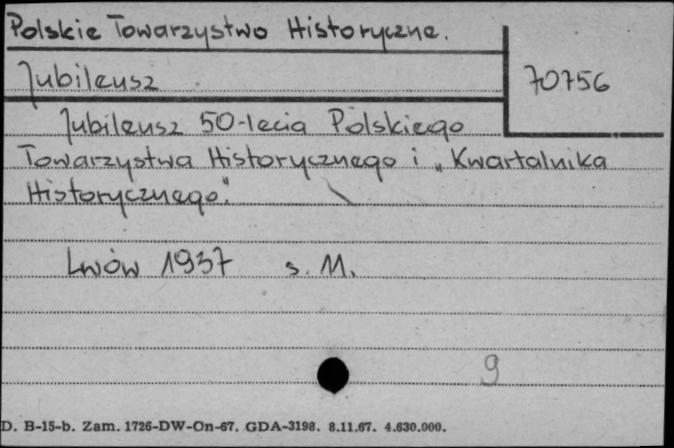 Polskie Towarzystwo Historyczne.
Jubileusz
70756
Jubileusz 50-lecia Polskiego
Towarzystwa Historycznego i „Kwartalnika
Historycznego."
Lwów 1937 s. 11.
9
D. B-15-b. Zam. 1726-DW-On-67. GDA-3198. 8.11.67. 4.630.000.